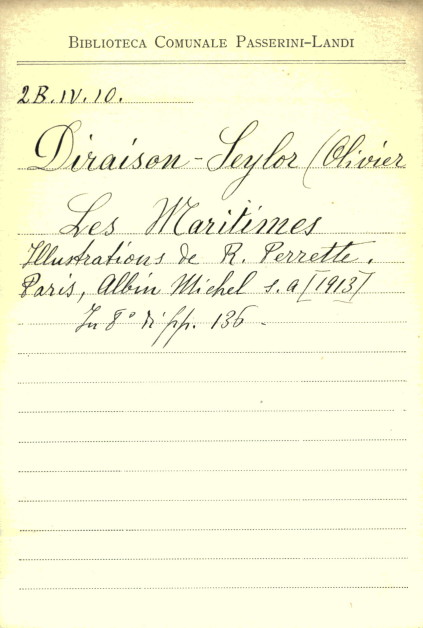 BIBLIOTECA COMUNALE PASSERINI-LANDI
2B.IV.10.
Diraison-Seylor (Olivier
Les Maritimes
Illustrations de R. Perrette.
Paris, Albin Michel s.a [1913]
In 8° di pp. 136